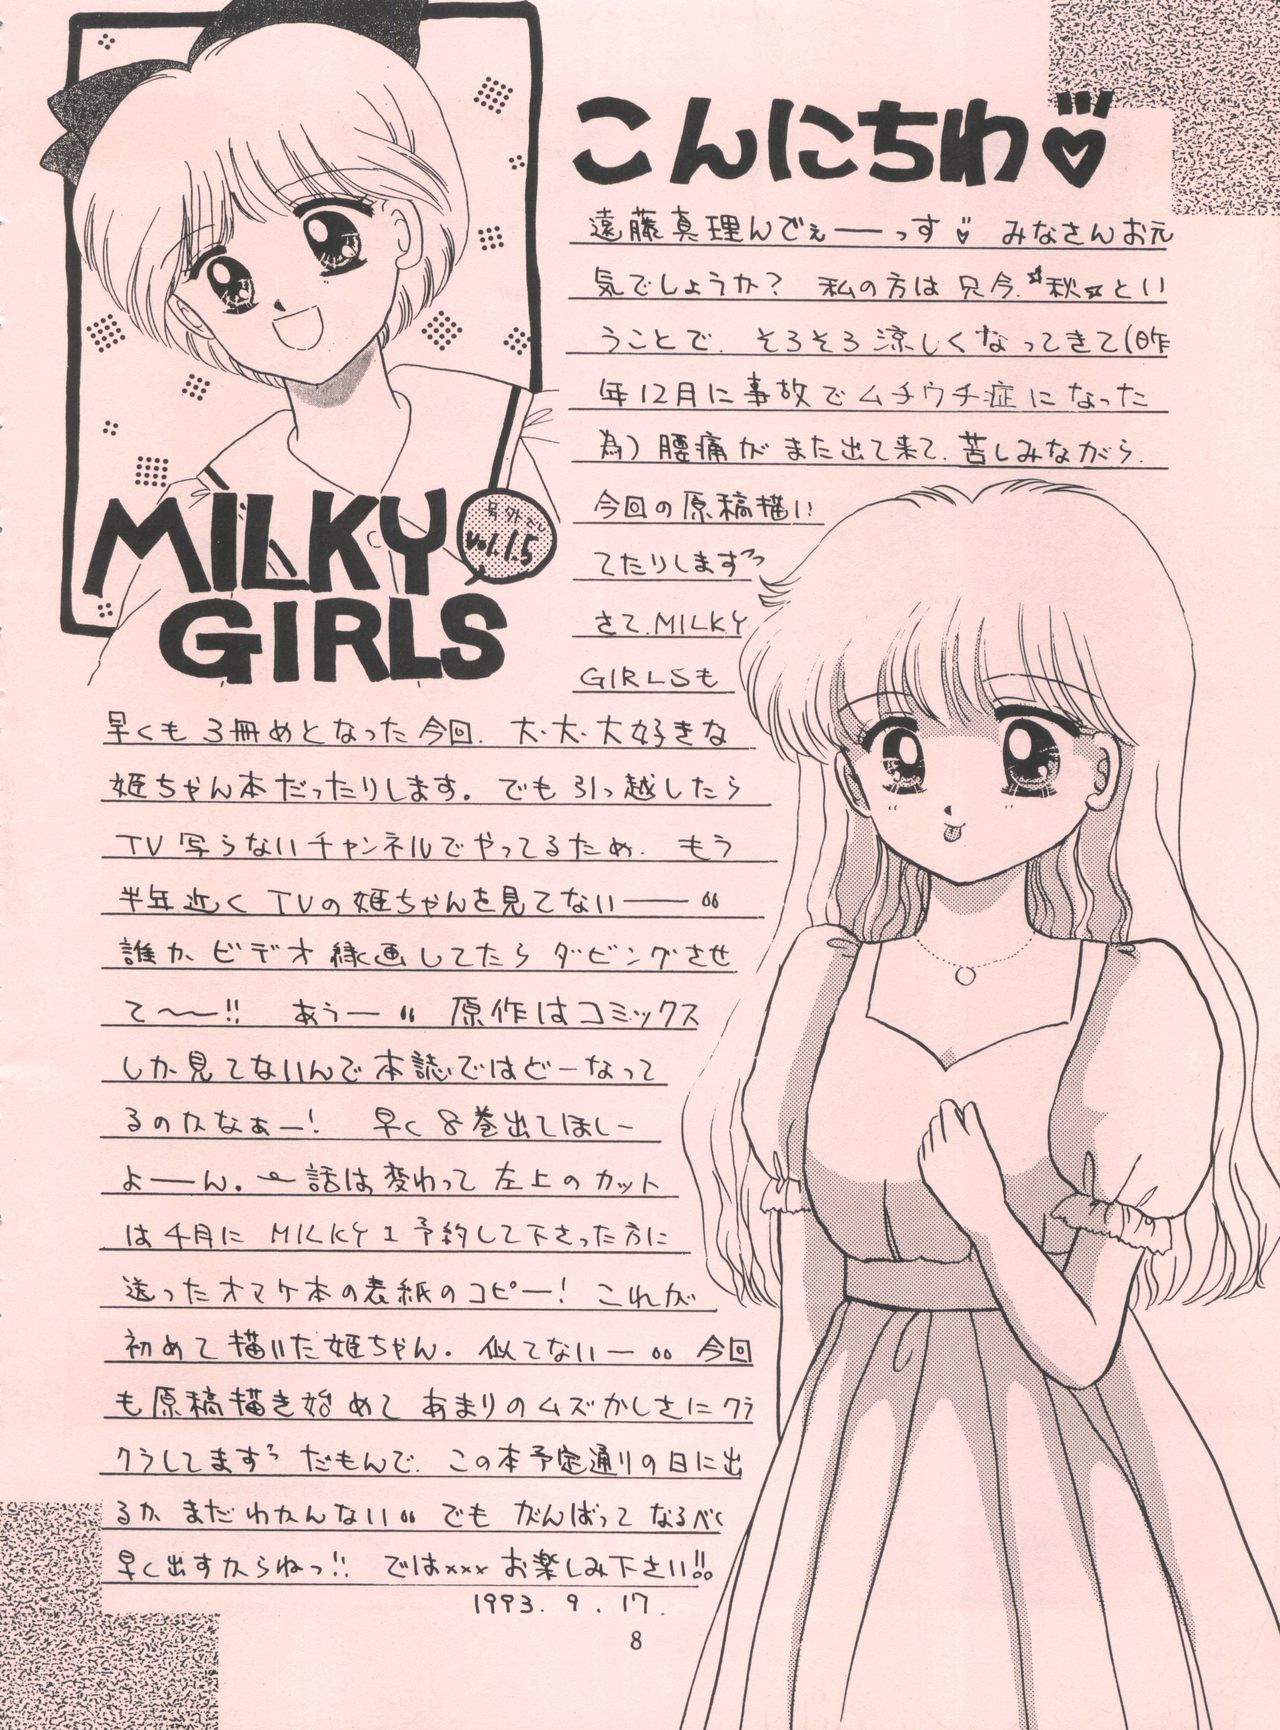 こんにちわ♡
遠藤真理んでぇーっす♡ みなさんお元
気でしょうか? 私の方は只今、☆秋☆とい
うことで、そろそろ涼しくなってきて(昨
年12月に事故でムチウチ症になった
為)腰痛がまた出て来て、苦しみながら、
今回の原稿描い
てたりします
さて、MILKY
GIRLSも
早くも3冊めとなった今回、大・大・大好きな
姫ちゃん本だったりします。でも引っ越したら
TV写らないチャンネルでやってるため、もう
半年近くTVの姫ちゃんを見てないー""
誰かビデオ録画してたらダビングさせ
て〜!! あぅー"" 原作はコミックス
しか見てないんで本誌ではどーなって
るのかなぁー! 早く8巻出てほしー
よーん。 話は変わって左上のカット
は4月にMILKY1予約して下さった方に
送ったオマケ本の表紙のコピー! これが
初めて描いた姫ちゃん。似てないー"" 今回
も原稿描き始めてあまりのムズかしさにクラ
クラしてます だもんで、この本予定通りの日に出
るかまだわかんない"" でもがんばってなるべく
早く出すからねっ!! では×××お楽しみ下さい!!
1993.9.17.
MILKY
GIRLS
号外
vol.1.5
8